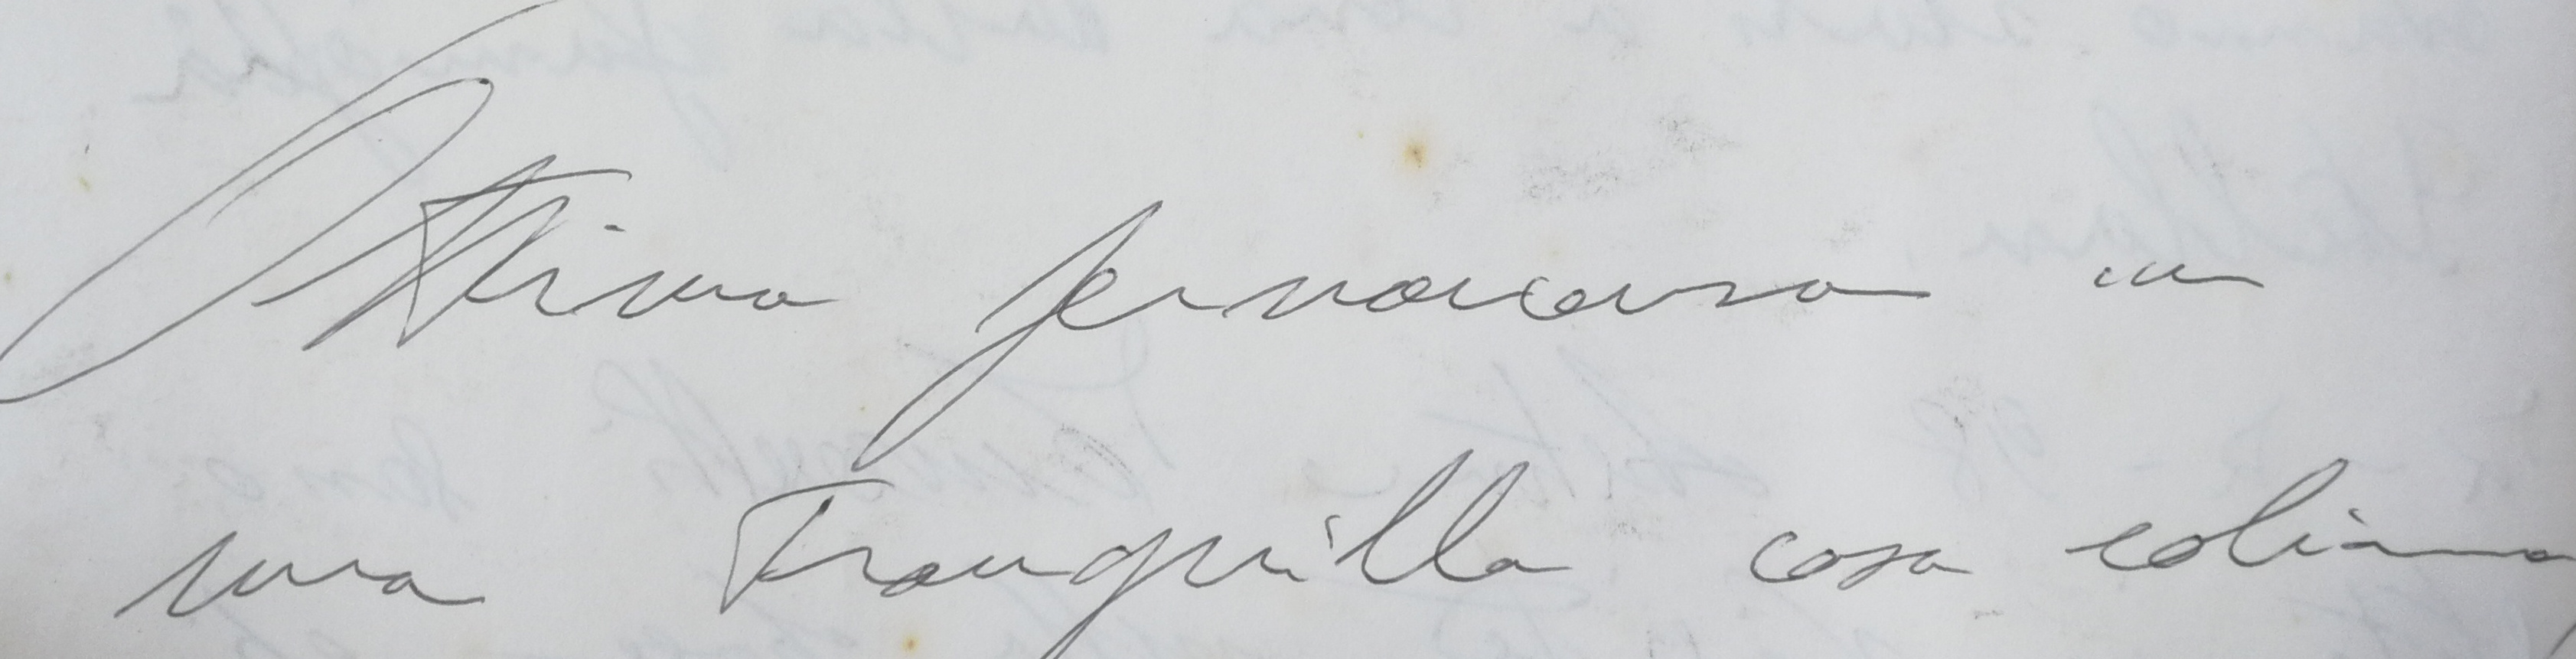 Ottima permanenza in
una Tranquilla casa eoliana